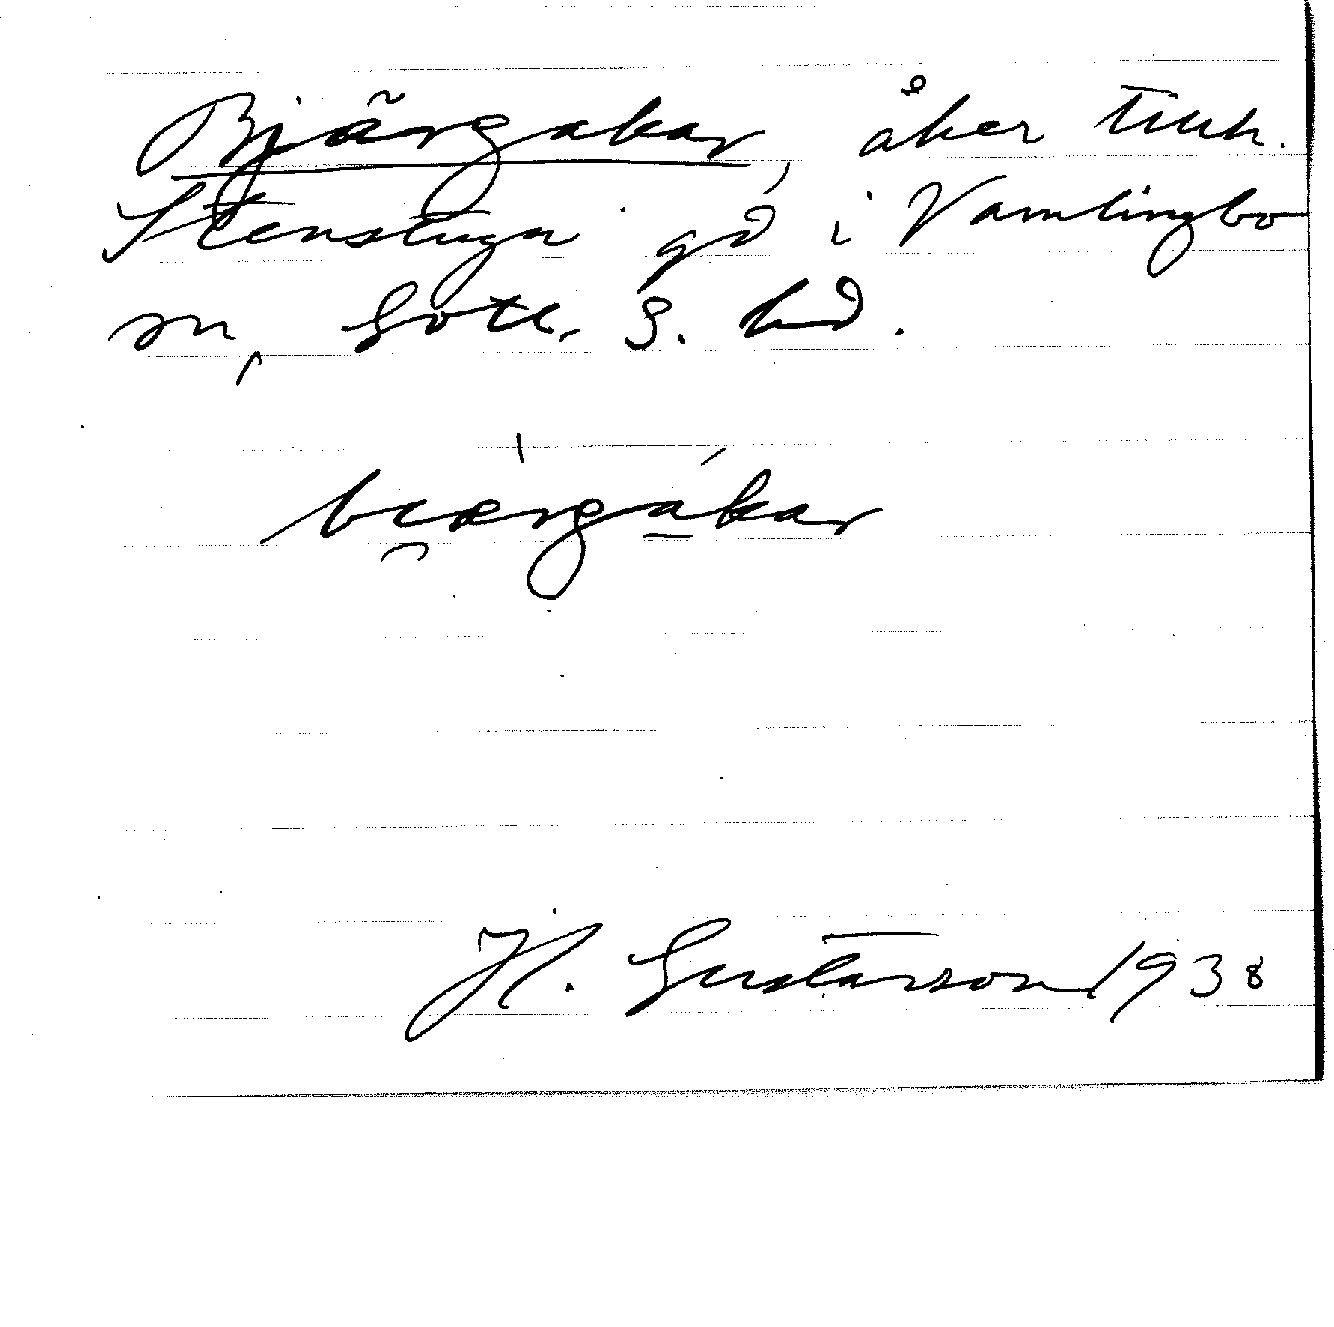 Bjärgakar, åker tillh.
Stenstugu gd i Vamlingbo
sn, Gotl. S. hd.
bi̯ærgakar
H. Gustavson 1938